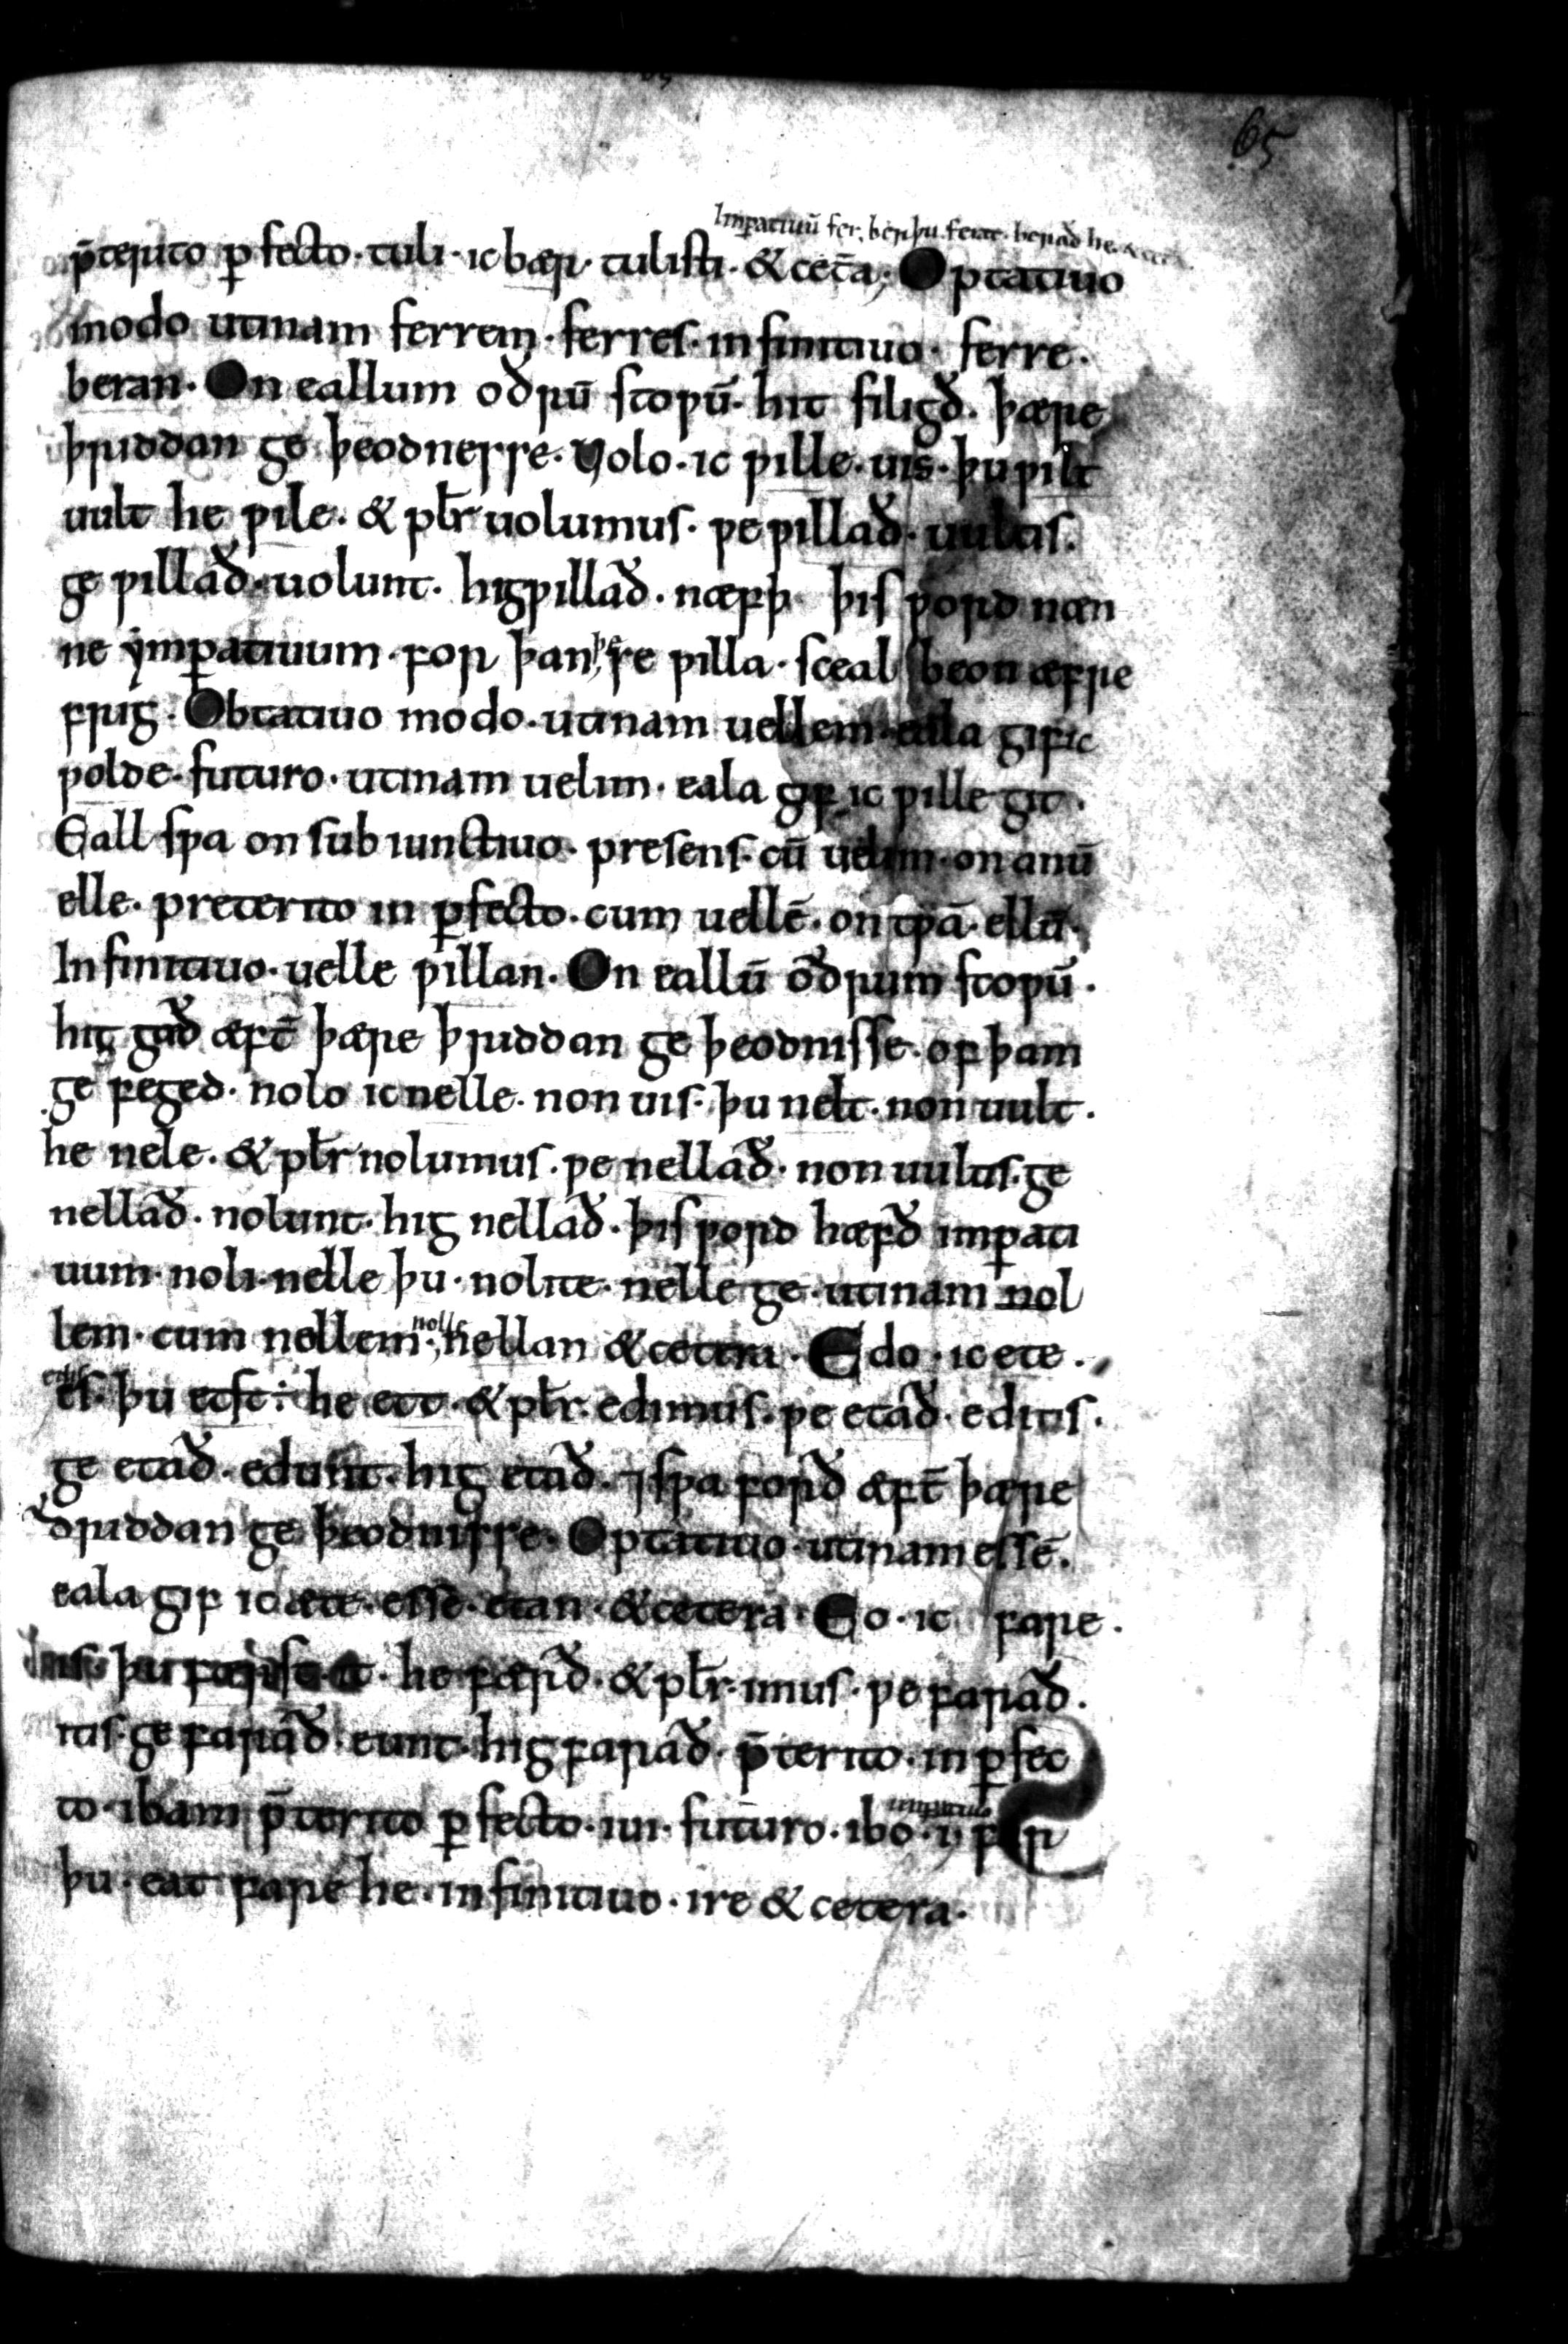 65
Imꝑatiuū fer. ber þu. ferat. berað he. &
p̄terito ꝑfecto · tuli · ic bær · tulisti · & cet̄a; Optatiuo
modo utinam ferrem · ferres · infinitiuo · ferre ·
beran · On eallum oðrū stopū · hit filigð · þære
þriddan ge þeodnesse · Uolo · ic ƿille · uis · þu ƿilt
uult he ƿile · & pl̄r uolumus · ƿe ƿillað · uultis ·
ge ƿillað · uolunt · hig ƿillað · næfþ þis ƿord næn
ne ymꝑatiuum · for þan þe se ƿilla · sceal beon æfre
frig · Obtatiuo modo · utinam uellem · eala gif ic
ƿolde · futuro · utinam uelim · eala gif ic ƿille git ·
Eall sƿa on subiunctiuo · presens · cū uelim · on anū
elle · preterito inꝑfecto · cum uellē · on tƿā · ellū ·
Infinitiuo · uelle ƿillan · On eallū oðrum stopū ·
hit gað æft̄ þære þriddan ge þeodnisse · of þam
ge feged · nolo ic nelle · non uis · þu nelt · non uult ·
he nele · & pl̄r nolumus · ƿe nellað · non uultis · ge
nellað · nolunt · hig nellað · þis ƿord hæfð imꝑati
uum · noli · nelle þu · nolite · nelle ge · utinam nol
lem · cum nollem · nolle nellan & cetera · Edo · ic ete ·
edis
es · þu etst · he ett · & pl̄r · edimus · ƿe etað · editis ·
ge etað · edunt · hig etað · ⁊ sƿa forð æft̄ þære
ðriddan ge þeodnisse · Optatiuo · utinam essē ·
eala gif ic æte · esse · etan · & cetera · Eo · ic fare ·
is · þu færst · it · he færð · & pl̄r · imus · ƿe farað ·
itis · ge farað · eunt · hig farað · p̄terito · inꝑfec
to · ibam p̄terito ꝑfecto · iui · futuro · ibo · i fær
þu · eat fare he · infinitiuo · ire & cetera ·